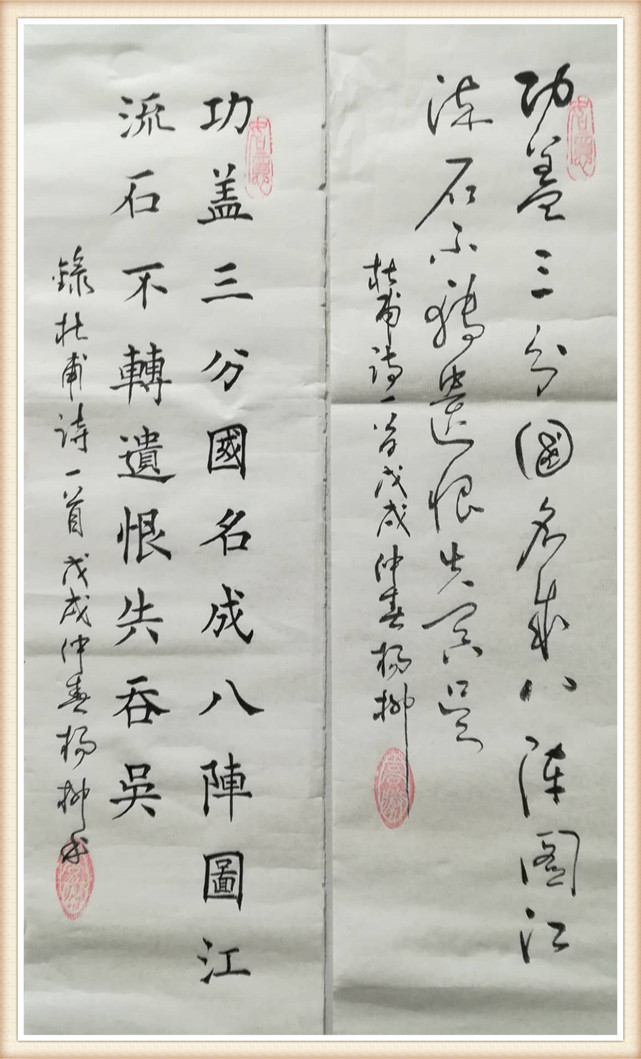 功盖三分國名成八陣图江
流石不轉遗恨失吞吴
杜甫诗一首戊戌仲春杨柳
功盖三分國名成八陣圖江
流石不轉遺恨失吞吳
錄杜甫诗一首戊戌仲春杨柳书